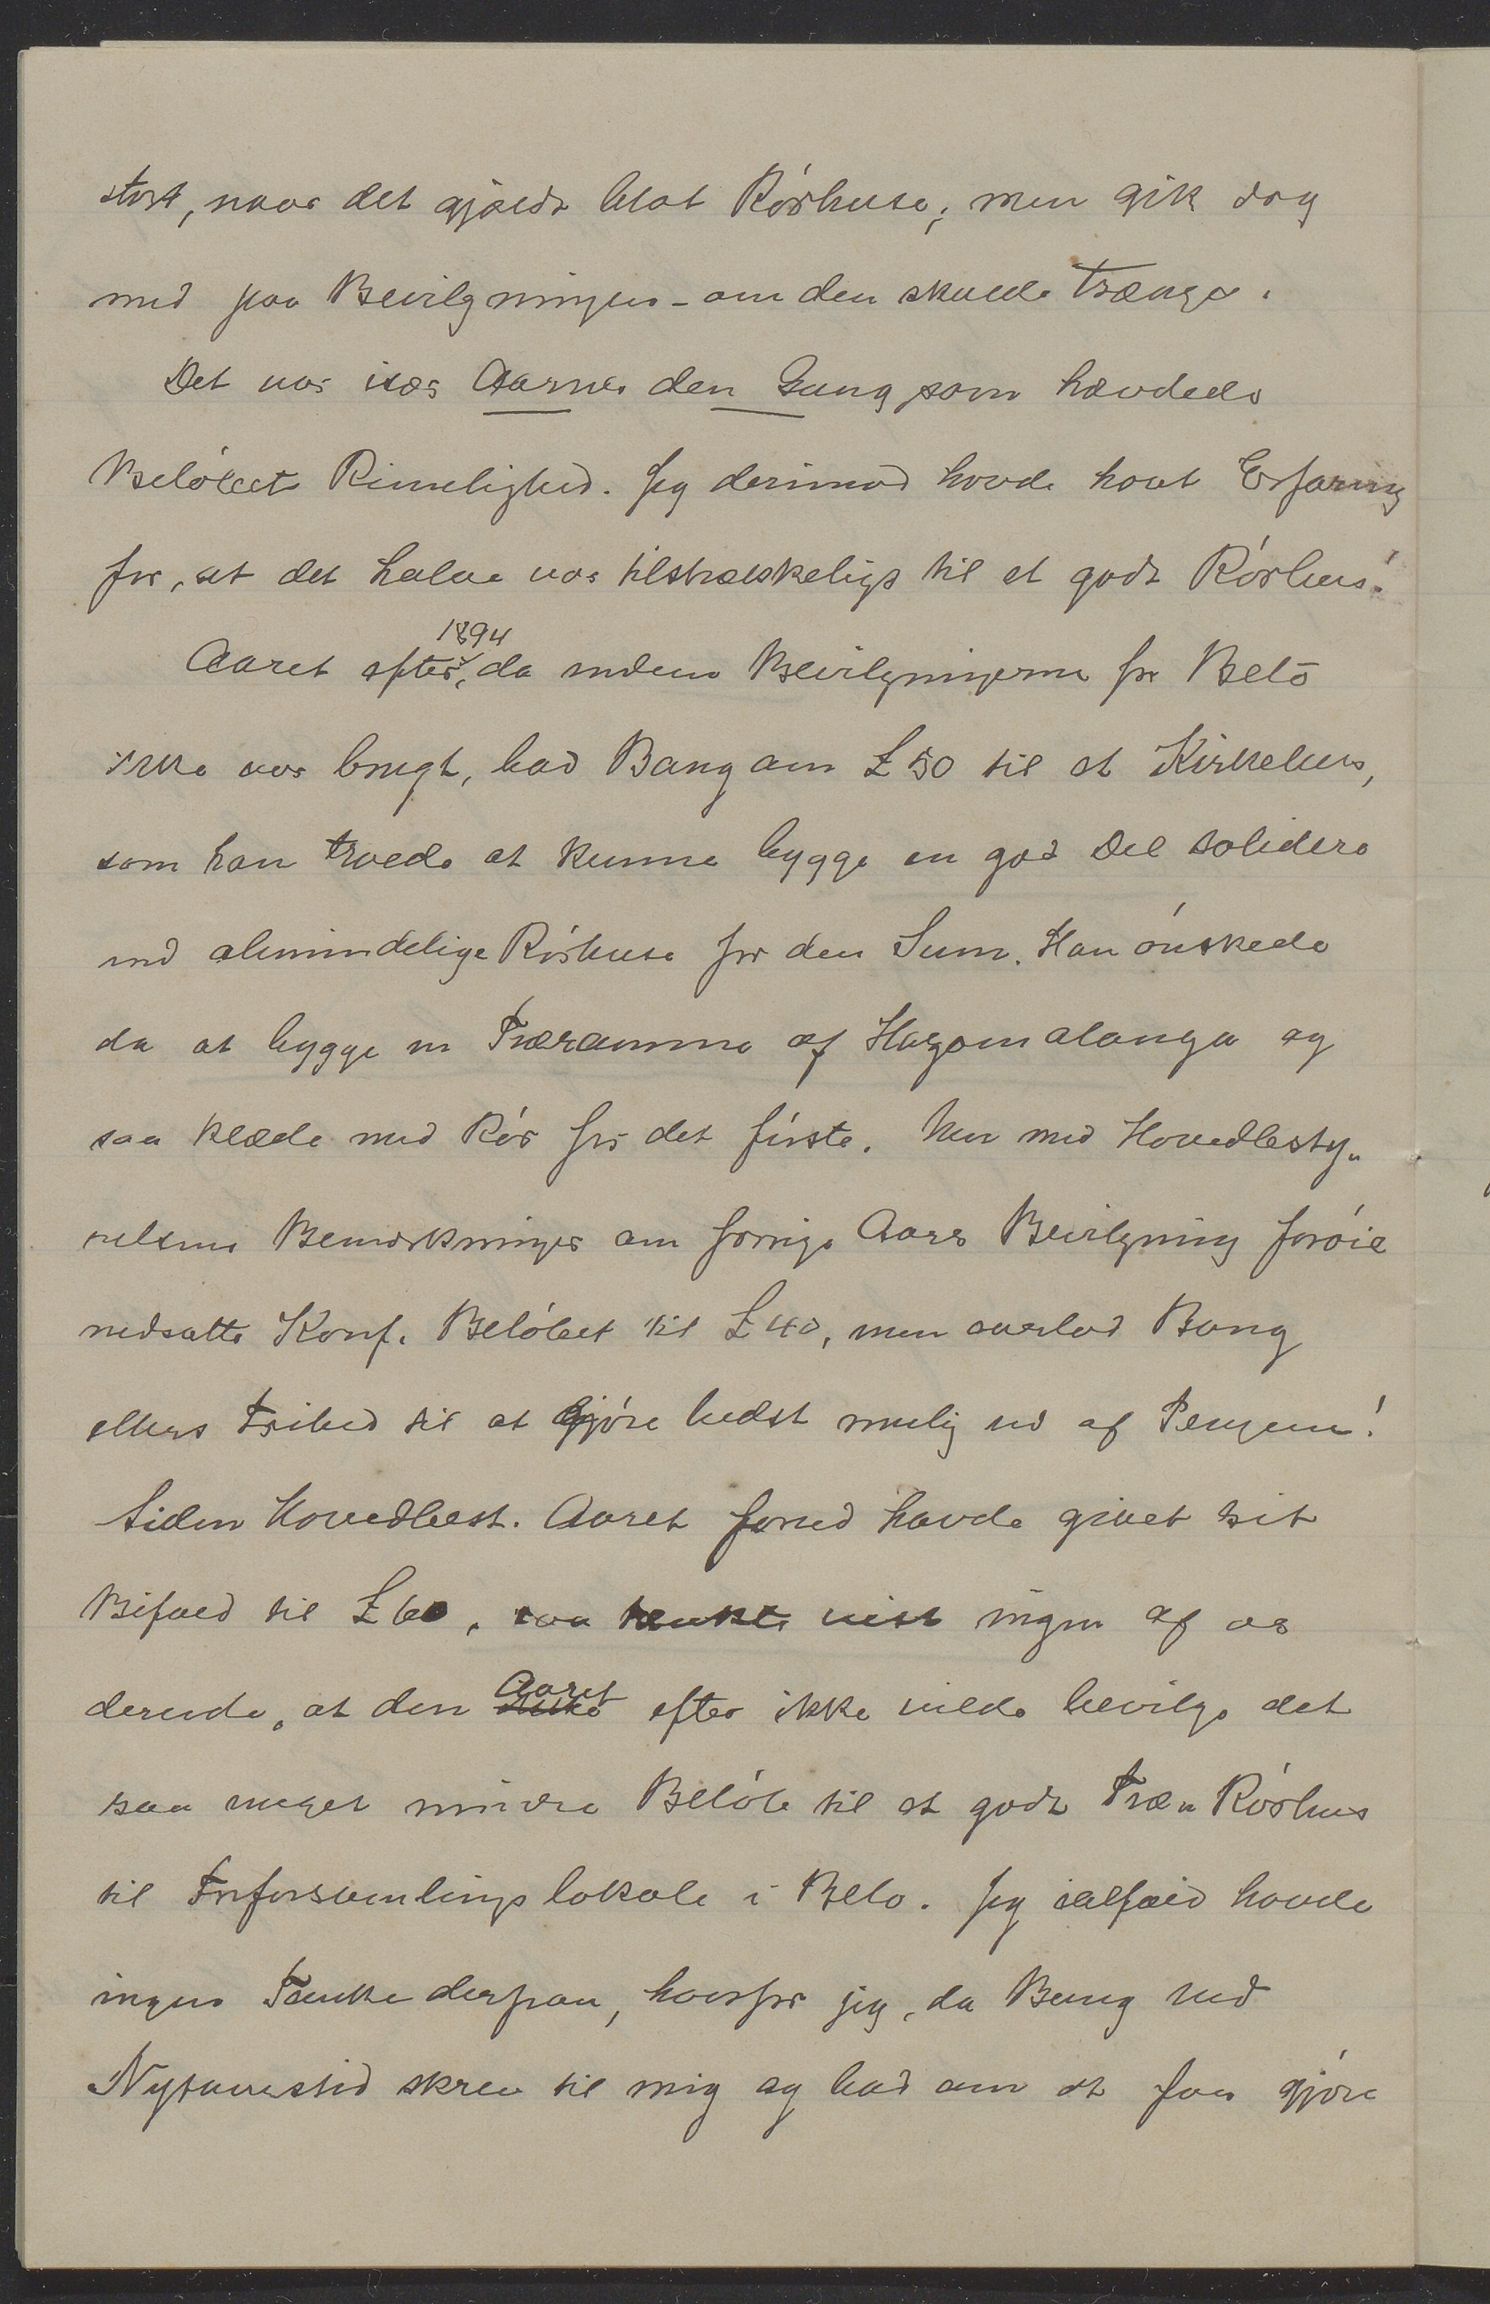 stort, naar det gjaldt blot Rørhuse; men gik dog
med paa Bevilgningen – om den skulde trænges.
Det var især Aarnes den Gang som hævdede
Beløbets Rimelighed. Jeg derimod havde havt Erfaring
for, at det halve var tilstrækkeligt til et godt Rørhus.
Aaret efter, 1894 da endnu Bevilgningerne for Belo
ikke var brugt, bad Bang om £ 50 til et Kirkehus,
som han troede at kunne bygge en god Del solidere
end almindelige Rørhuse for den Sum. Han ønskede
da at bygge en Træramme af Hazomalanga og
saa klæde med Rør for det første. Men med Hovedbesty-
relsens Bemærkninger om forrige Aars Bevilgning forøie
nedsatte Konf. Beløbet til £ 40, men overlod Bang
ellers Frihed til at gjøre bedst mulig ud af Pengene!
Siden Hovedbest. Aaret forud havde givet sit
Bifald til £ 60, saa tænkte vist ingen af os
derude, at den Aaret efter ikke vilde bevilge det
saa meget mindre Beløb til et godt Træ-Rørhus
til Forsamlingslokale i Belo. Jeg ialfald havde
ingen Tanke derpaa, hvorfor jeg, da Bang ved
Nytaarstid skrev til mig og bad om at faa gjøre